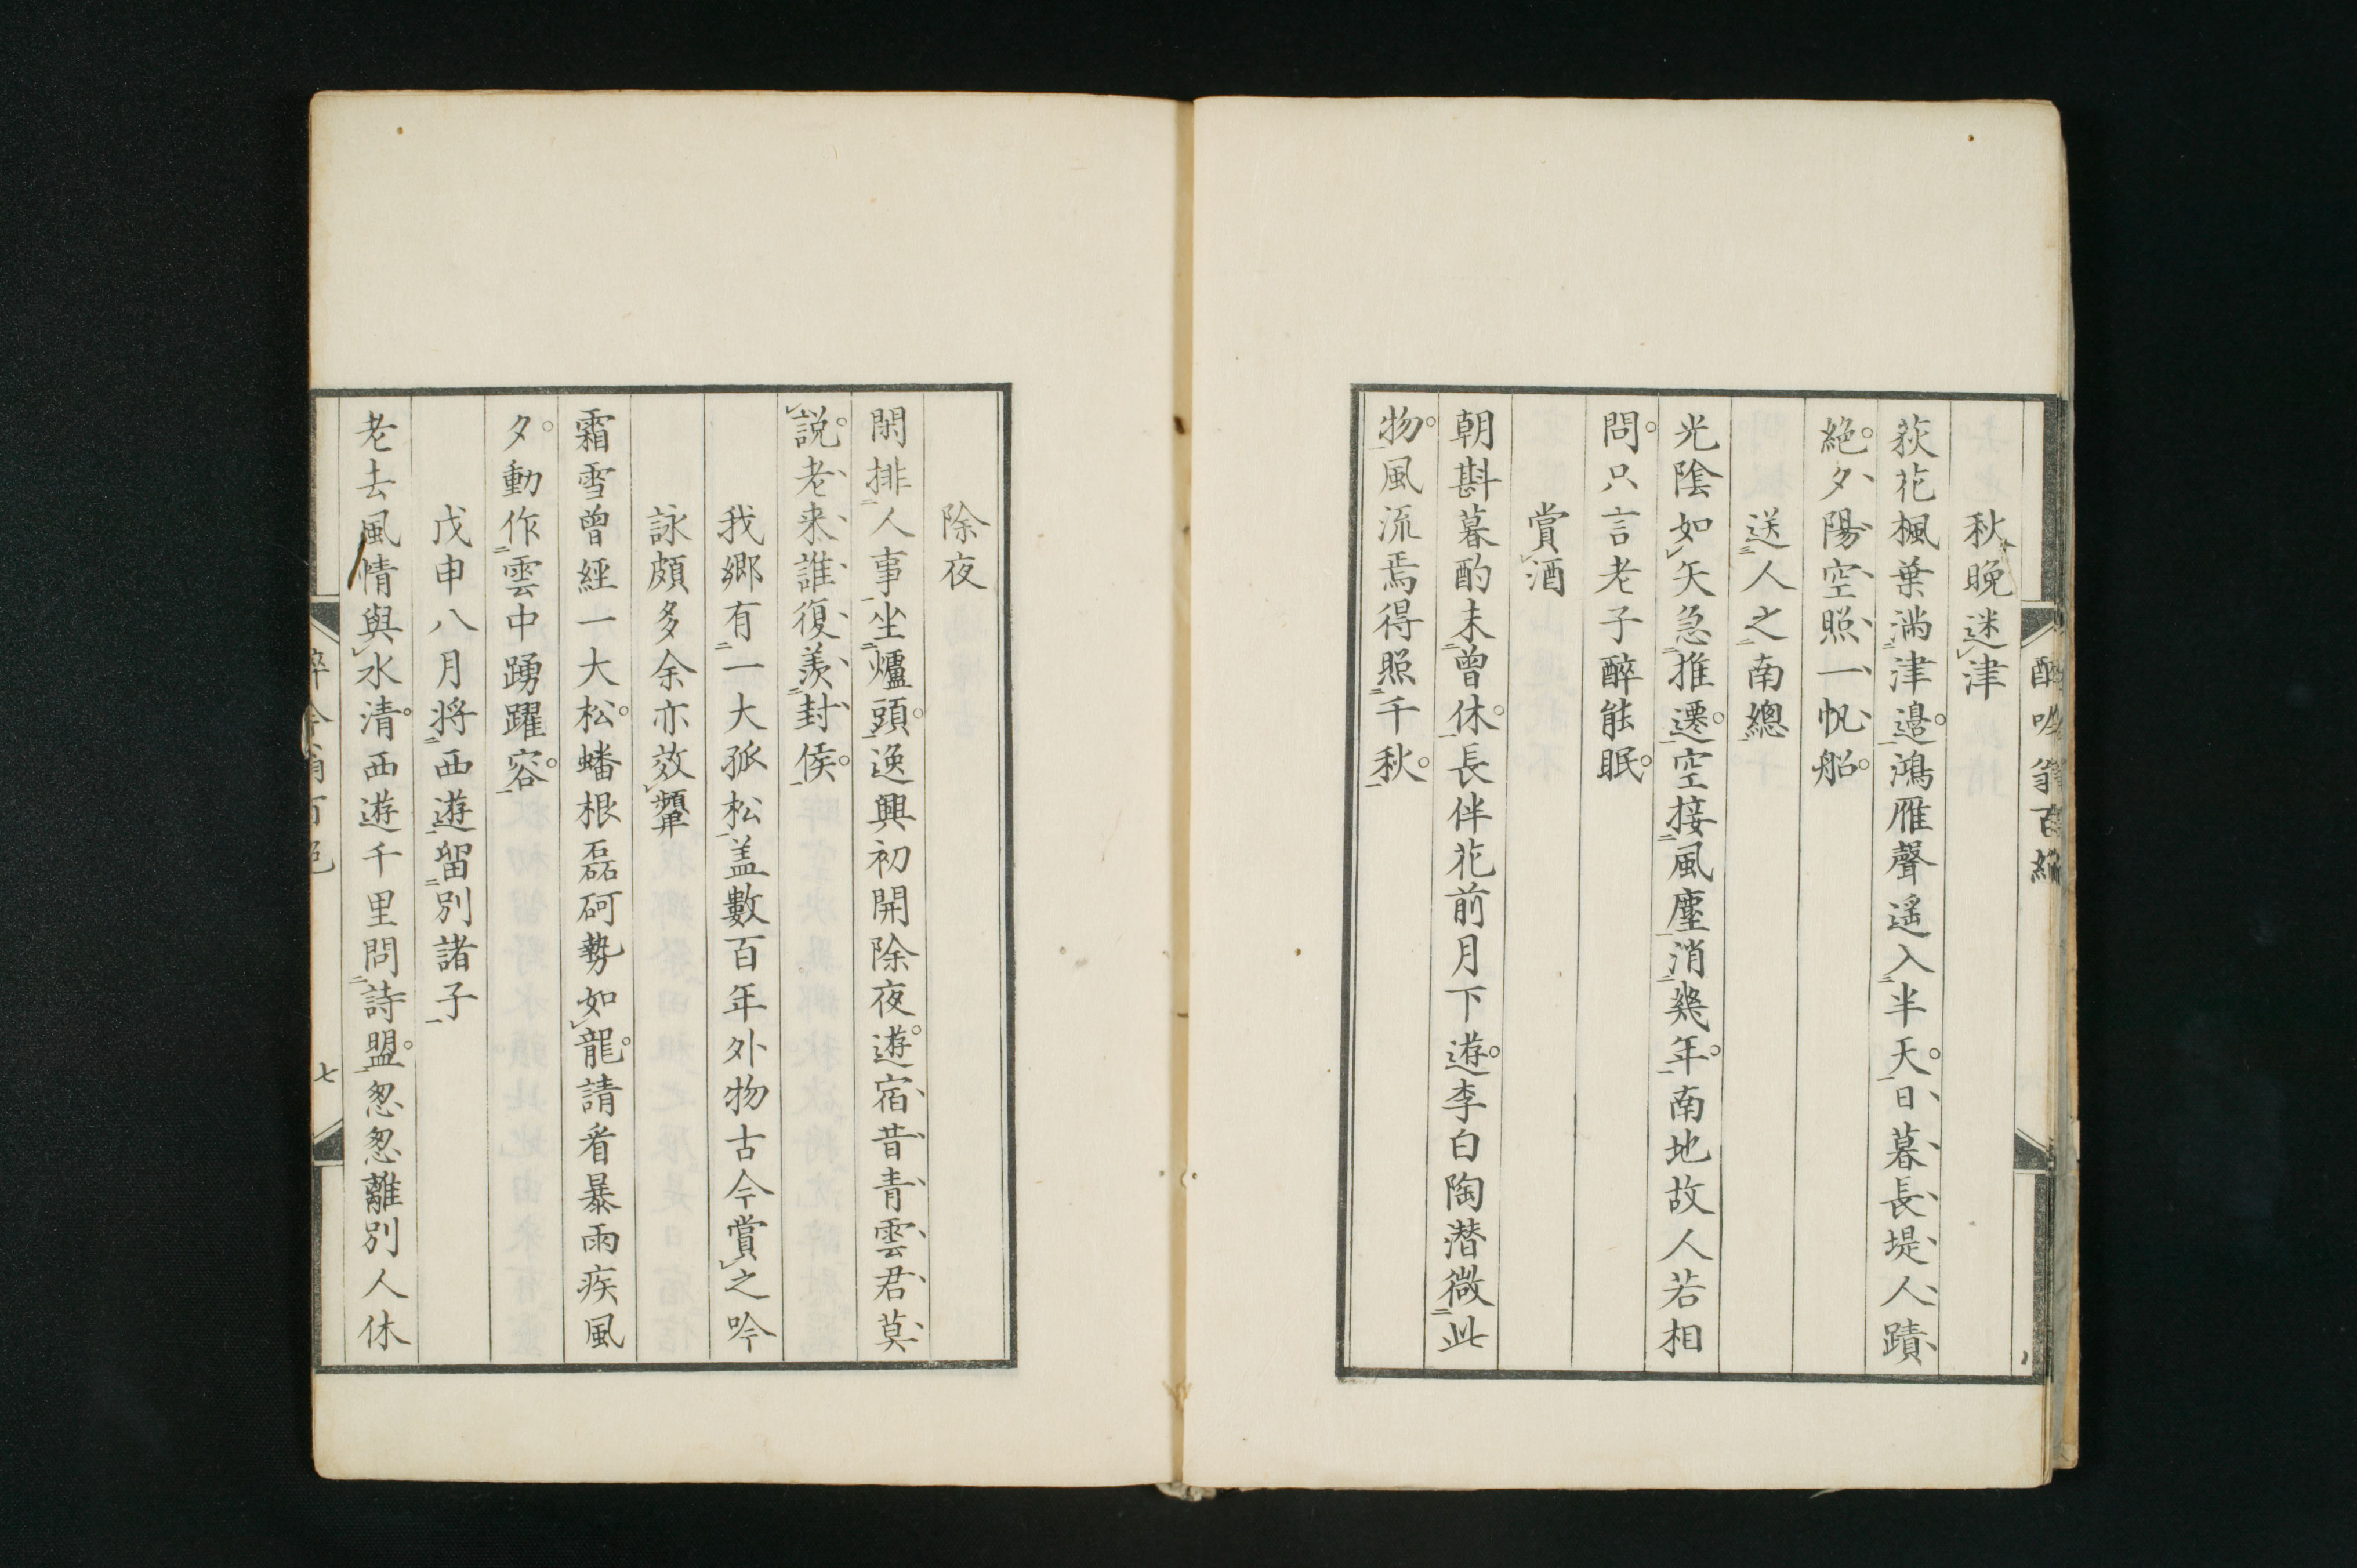 醉吟翁百絶
秋晚迷津
荻花楓葉滿津邉鴻雁聲遥入半天日暮長堤人蹟
絶夕陽空照一帆船
送人之南總
光陰如矢急推遷空接風塵消幾年南地故人若相
問只言老子醉能眠
賞酒
朝斟暮酌未曾休長伴花前月下遊李白陶潜微此
物風流焉得照千秋
除夜
閑排人事坐爐頭逸興初開除夜遊宿昔青雲君莫
説老来誰復羨封侯
我郷有一大孤松盖數百年外物古今賞之吟
詠頗多余亦效顰
霜雪曽經一大松蟠根磊砢勢如龍請看暴雨疾風
夕動作雲中踴躍容
戊申八月将西遊留別諸子
老去風情與水清西遊千里問詩盟怱怱離別人休
七